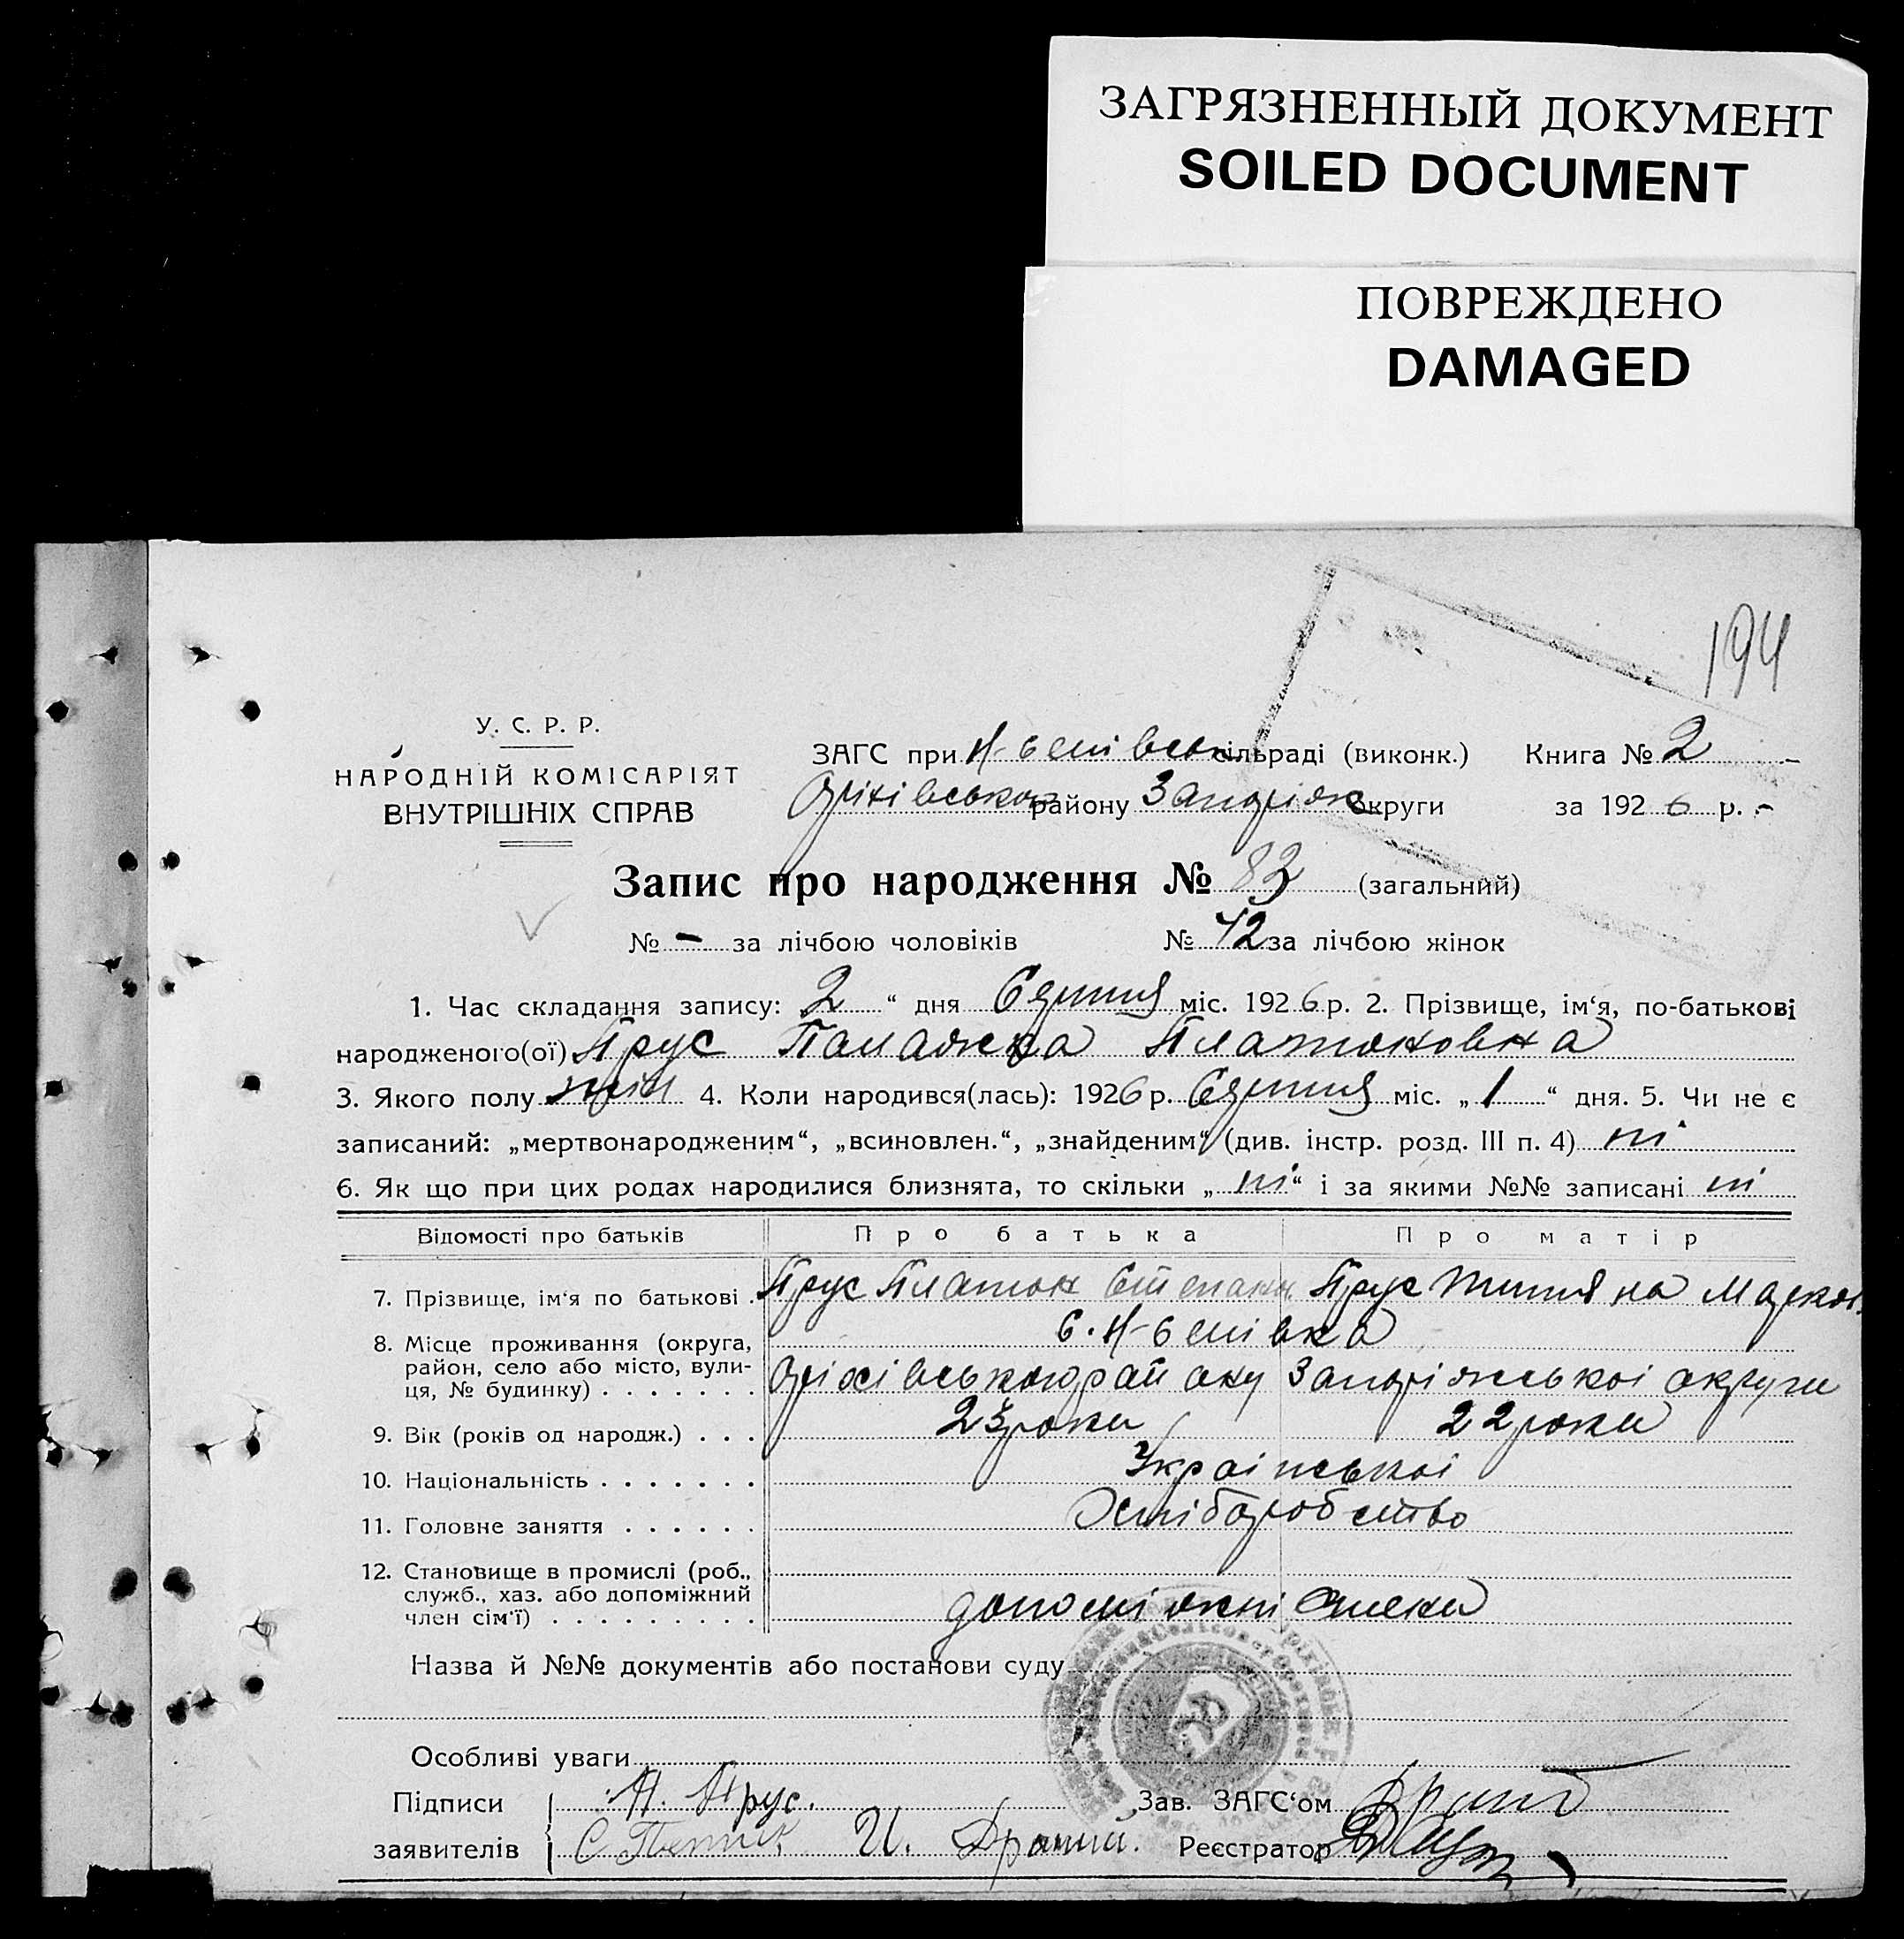 ЗАГРЯЗНЕННЫЙ ДОКУМЕНТ
SOILED DOCUMENT
ПОВРЕЖДЕНО
DAMAGED
194
У. С. Р. Р.
НАРОДНІЙ КОМІСАРІЯТ
ВНУТРІШНІХ СПРАВ
ЗАГС при сільраді (виконк.) Книга № 2
Оріхівського району Запоріж округи за 1926 р.
Запис про народження № 83 (загальний)
№ - за лічбою чоловіків № 42 за лічбою жінок
1. Час складання запису: 2 “ дня Серпня міс. 1926 р. 2. Прізвище, ім‘я, по-батькові
народженого(ої) Прус Палажка Платоновна
3. Якого полу жін 4. Коли народився(лась): 1926 р. Серпня міс. „ 1 “ дня. 5. Чи не є
записаний: „мертвонародженим“, „всиновлен.“, „знайденим“ (див. інстр. розд. III п. 4) ні
6. Як що при цих родах народилися близнята, то скільки „ ні “ і за якими №№ записані ні
Відомості про батьків Про батька Про матір
7. Прізвище, ім‘я по батькові . Прус Платон Степан. Прус Тетяна Марков.
8. Місце проживання (округа,
район, село або місто, вули-
ця, № будинку) . . . . . . . Оріхівського району Запоріжської округи
9. Вік (років од народж.) . . . 23 роки 22 роки
10. Національність . . . . . . . Української
11. Головне заняття . . . . . . Хліборобство
12. Становище в промислі (роб.,
служб., хаз. або допоміжний
член сім‘ї) . . . . . . . . . допоміжні члени
Назва й №№ документів або постанови суду
Особливі уваги
Підписи П. Прус. Зав. ЗАГС‘ом
заявителів И. Реєстратор